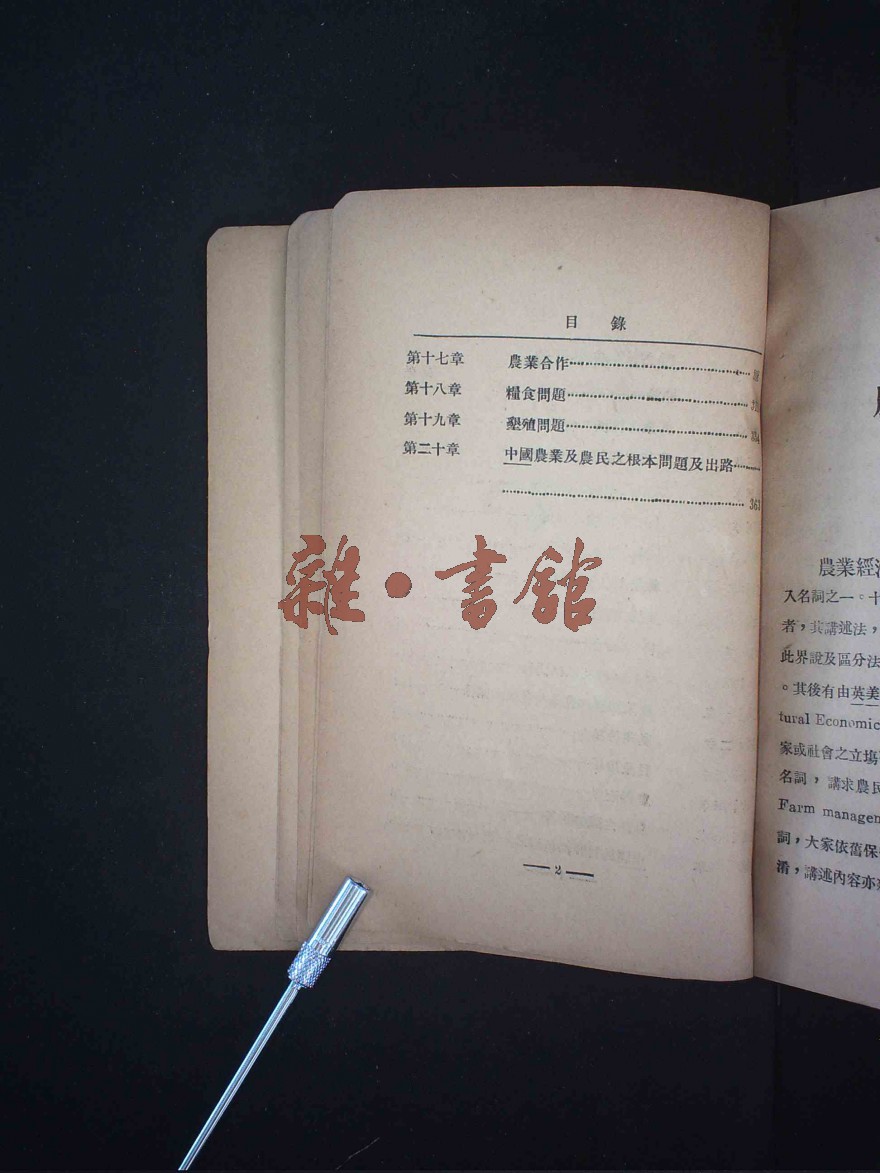 目 錄
第十七章 農業合作
第十八章 糧食問題
第十九章 墾殖問題
第二十章 中國農業及農民之根本問題及出路
363
雜・書館
2
農業經濟
入名詞之一。十
者，其講述法，
此界說及區分法
。其後有由英美
tural Economic
家或社會之立場
名詞，講求農民
Farm managem
詞，大家依舊保
淆，講述內容亦